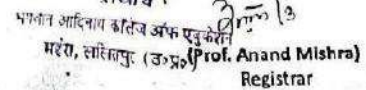 भगवान आदिनाथ कालेज ऑफ एजुकेशन
महर्रा, ललितपुर (उ०प्र०)
(Prof. Anand Mishra)
Registrar